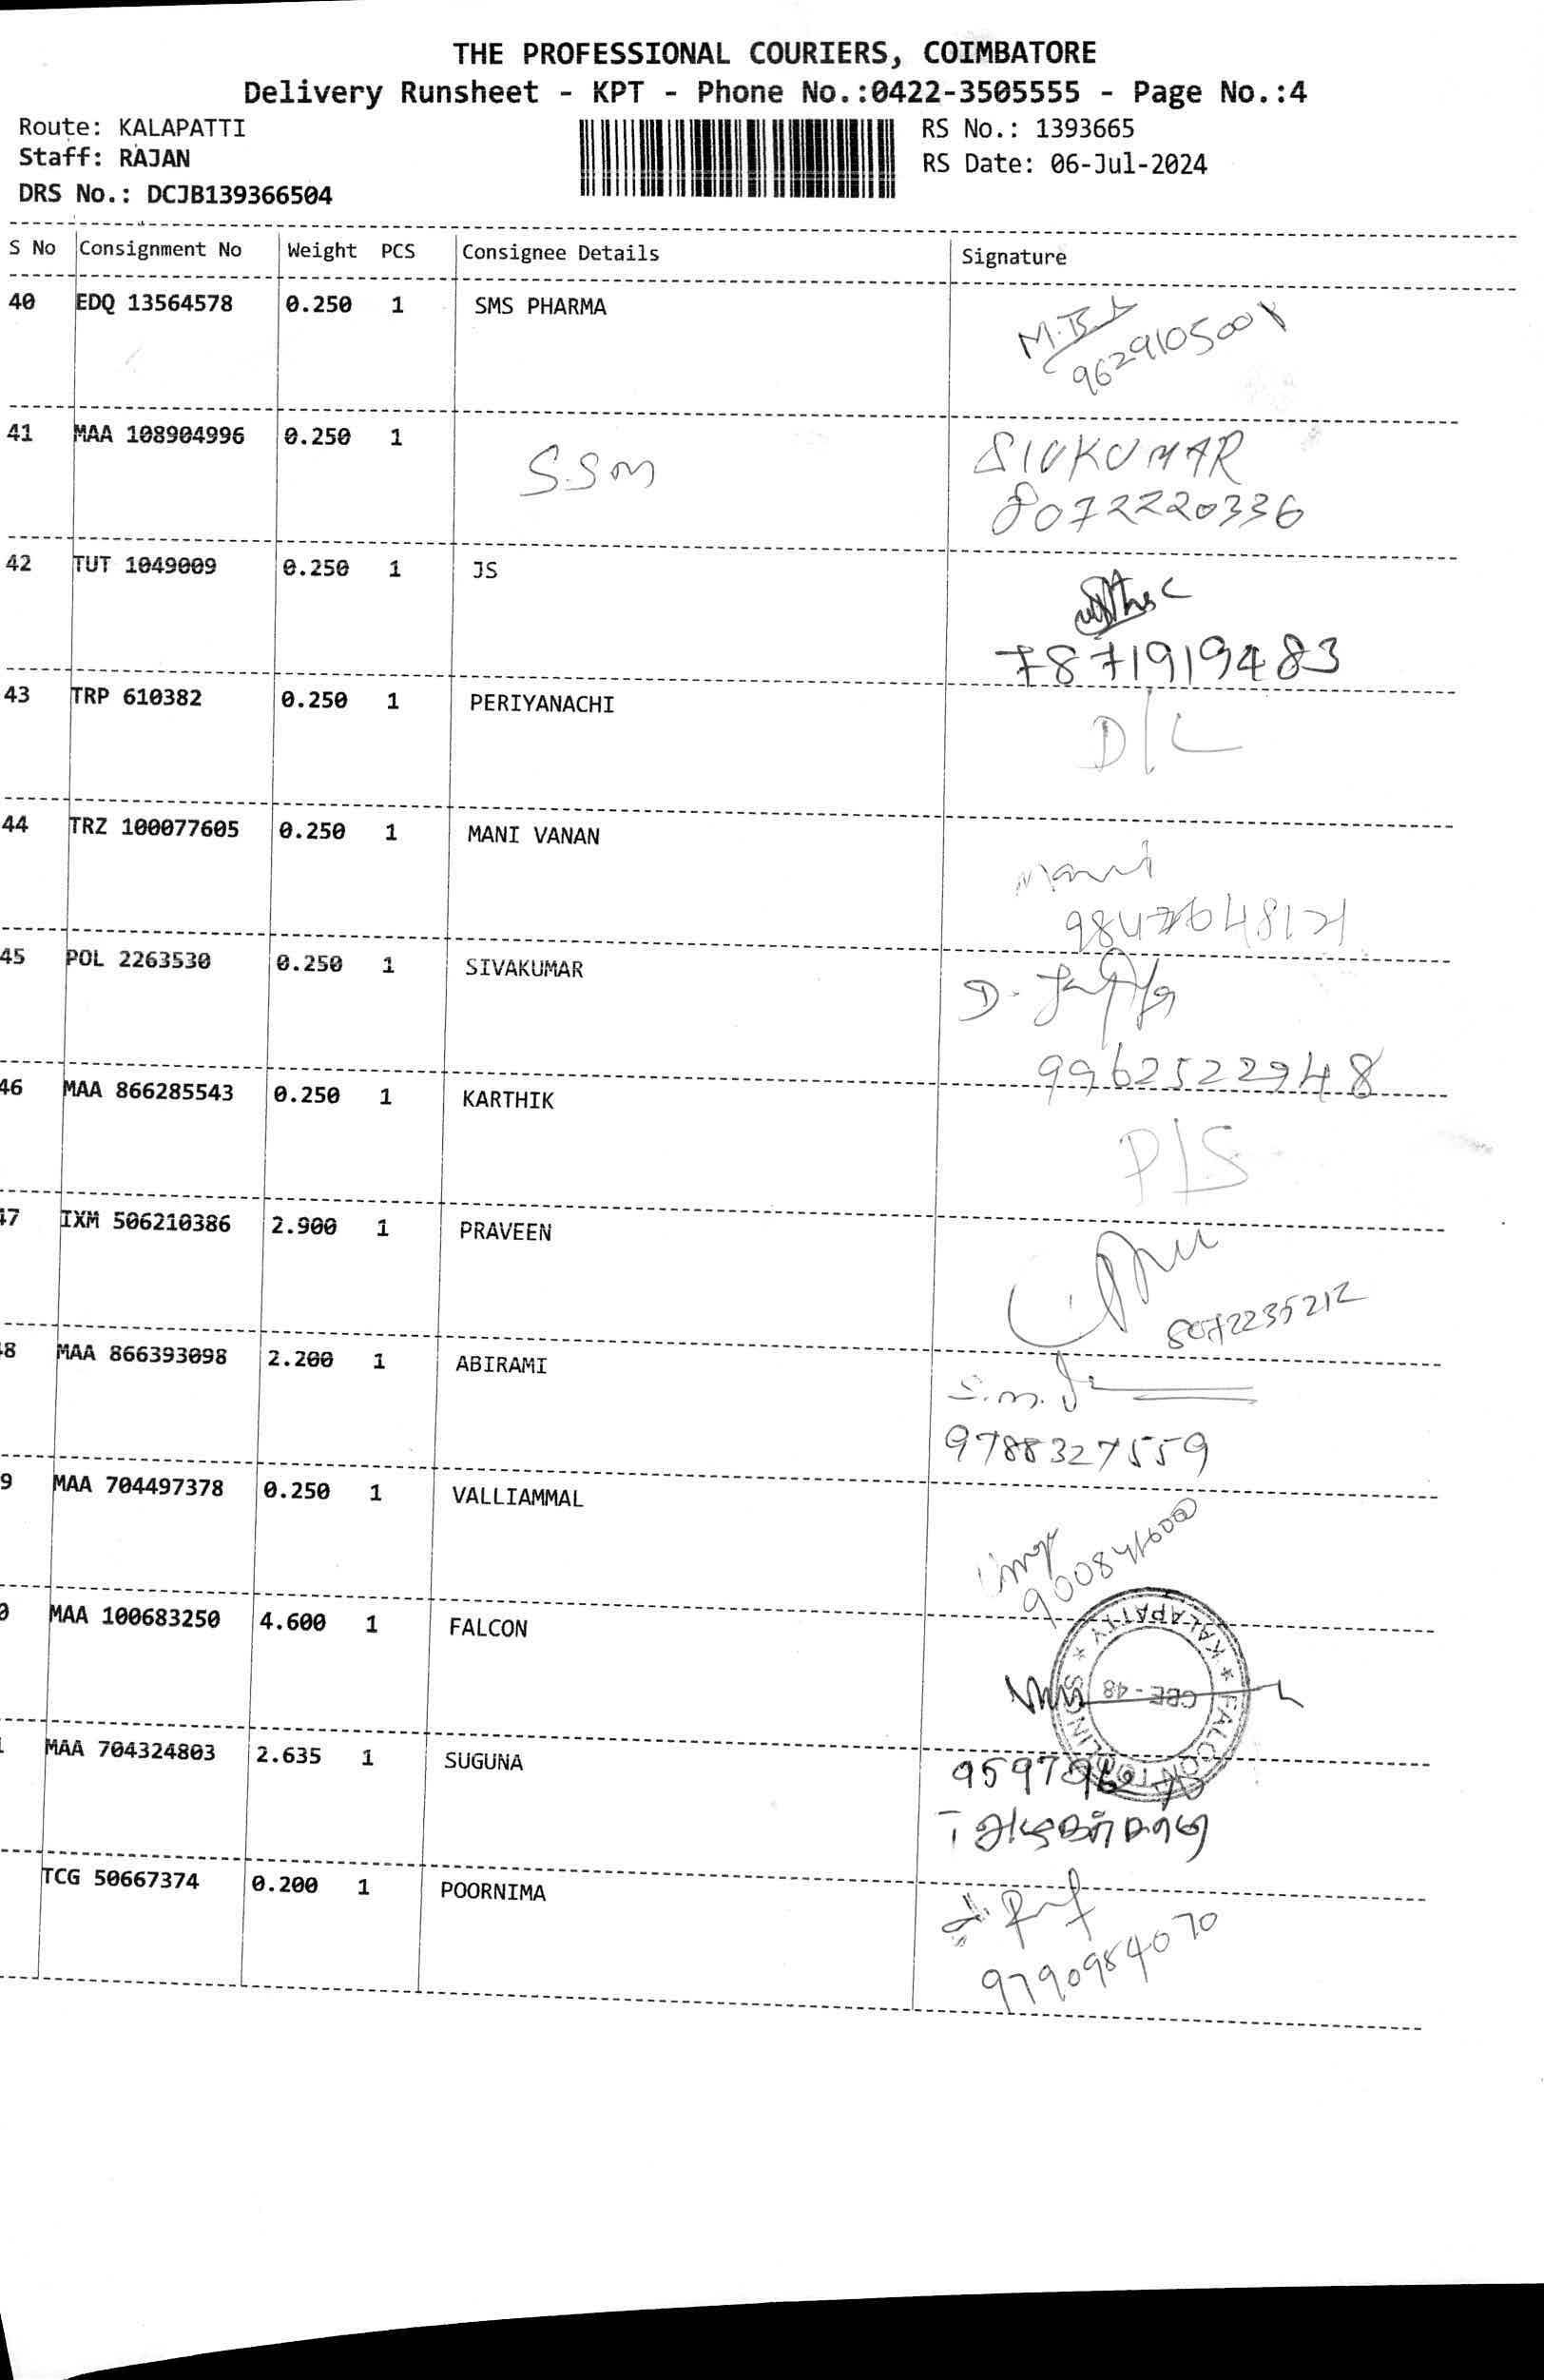 THE PROFESSIONAL COURIERS, COIMBATORE
Delivery Runsheet - KPT - Phone No.:0422-3505555 - Page No.:4
Route: KALAPATTI
Staff: RAJAN
DRS No.: DCJB139366504
RS No.: 1393665
RS Date: 06-Jul-2024
S No Consignment No Weight PCS Consignee Details Signature
40 EDQ 13564578 0.250 1 SMS PHARMA
9629105001
41 MAA 108904996 0.250 1
S.Sm
SIVKUMAR
8072220336
42 TUT 1049009 0.250 1 JS
7871919483
43 TRP 610382 0.250 1 PERIYANACHI
D/L
44 TRZ 100077605 0.250 1 MANI VANAN
Mani
45 POL 2263530 0.250 1 SIVAKUMAR
D.
9962522948
46 MAA 866285543 0.250 1 KARTHIK
P/S
47 IXM 506210386 2.900 1 PRAVEEN
8072235212
8 MAA 866393098 2.200 1 ABIRAMI
S.m.
9788327559
9 MAA 704497378 0.250 1 VALLIAMMAL
0 MAA 100683250 4.600 1 FALCON
* KALAPATTY *
CBE - 48
MAA 704324803 2.635 1 SUGUNA
TCG 50667374 0.200 1 POORNIMA
9790984070